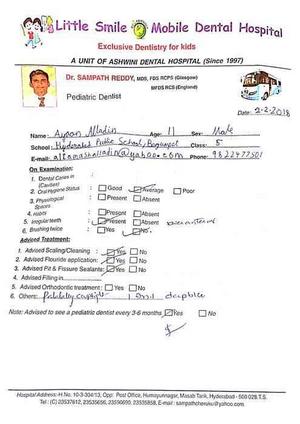 Little Smile Mobile Dental Hospital
Exclusive Dentistry for kids
A UNIT OF ASHWINI DENTAL HOSPITAL (Since 1997)
Dr. SAMPATH REDDY, MDS, FDS RCPS (Glasgow)
MFDS RCS (England)
Pediatric Dentist
Date: 2-2-2018
Name: Alladin Age: 11 Sex: Male
School: Hyderabad Public School, Begumpet Class: 5
E-mail: @yahoo.com Phone: 9822477501
On Examination:
1. Dental Caries in (Cavities)
2. Oral Hygiene Status Good Average Poor
3. Physiological Spaces Present Absent
4. Habits Present Absent
5. Irregular teeth Present Absent
6. Brushing twice Yes No
Advised Treatment:
1. Advised Scaling/Cleaning Yes No
2. Advised Flouride application: Yes No
3. Advised Pit & Fissure Sealants: Yes No
4. Advised Filling in
5. Advised Orthodontic treatment: Yes No
6. Others:
Note: Advised to see a pediatric dentist every 3-6 months Yes No
Hospital Address: H.No. 10-3-304/13, Opp: Post Office, Humayunnagar, Masab Tank, Hyderabad - 500 028 T.S.
Tel: (O) 23537612, 23535656, 23590699, 23535858, E-mail: sampathcheruku@yahoo.com